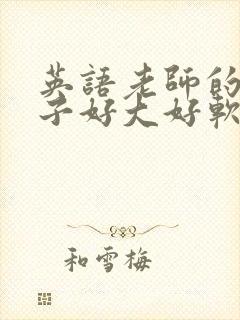 英語老師的
子好大好軟
和雪梅